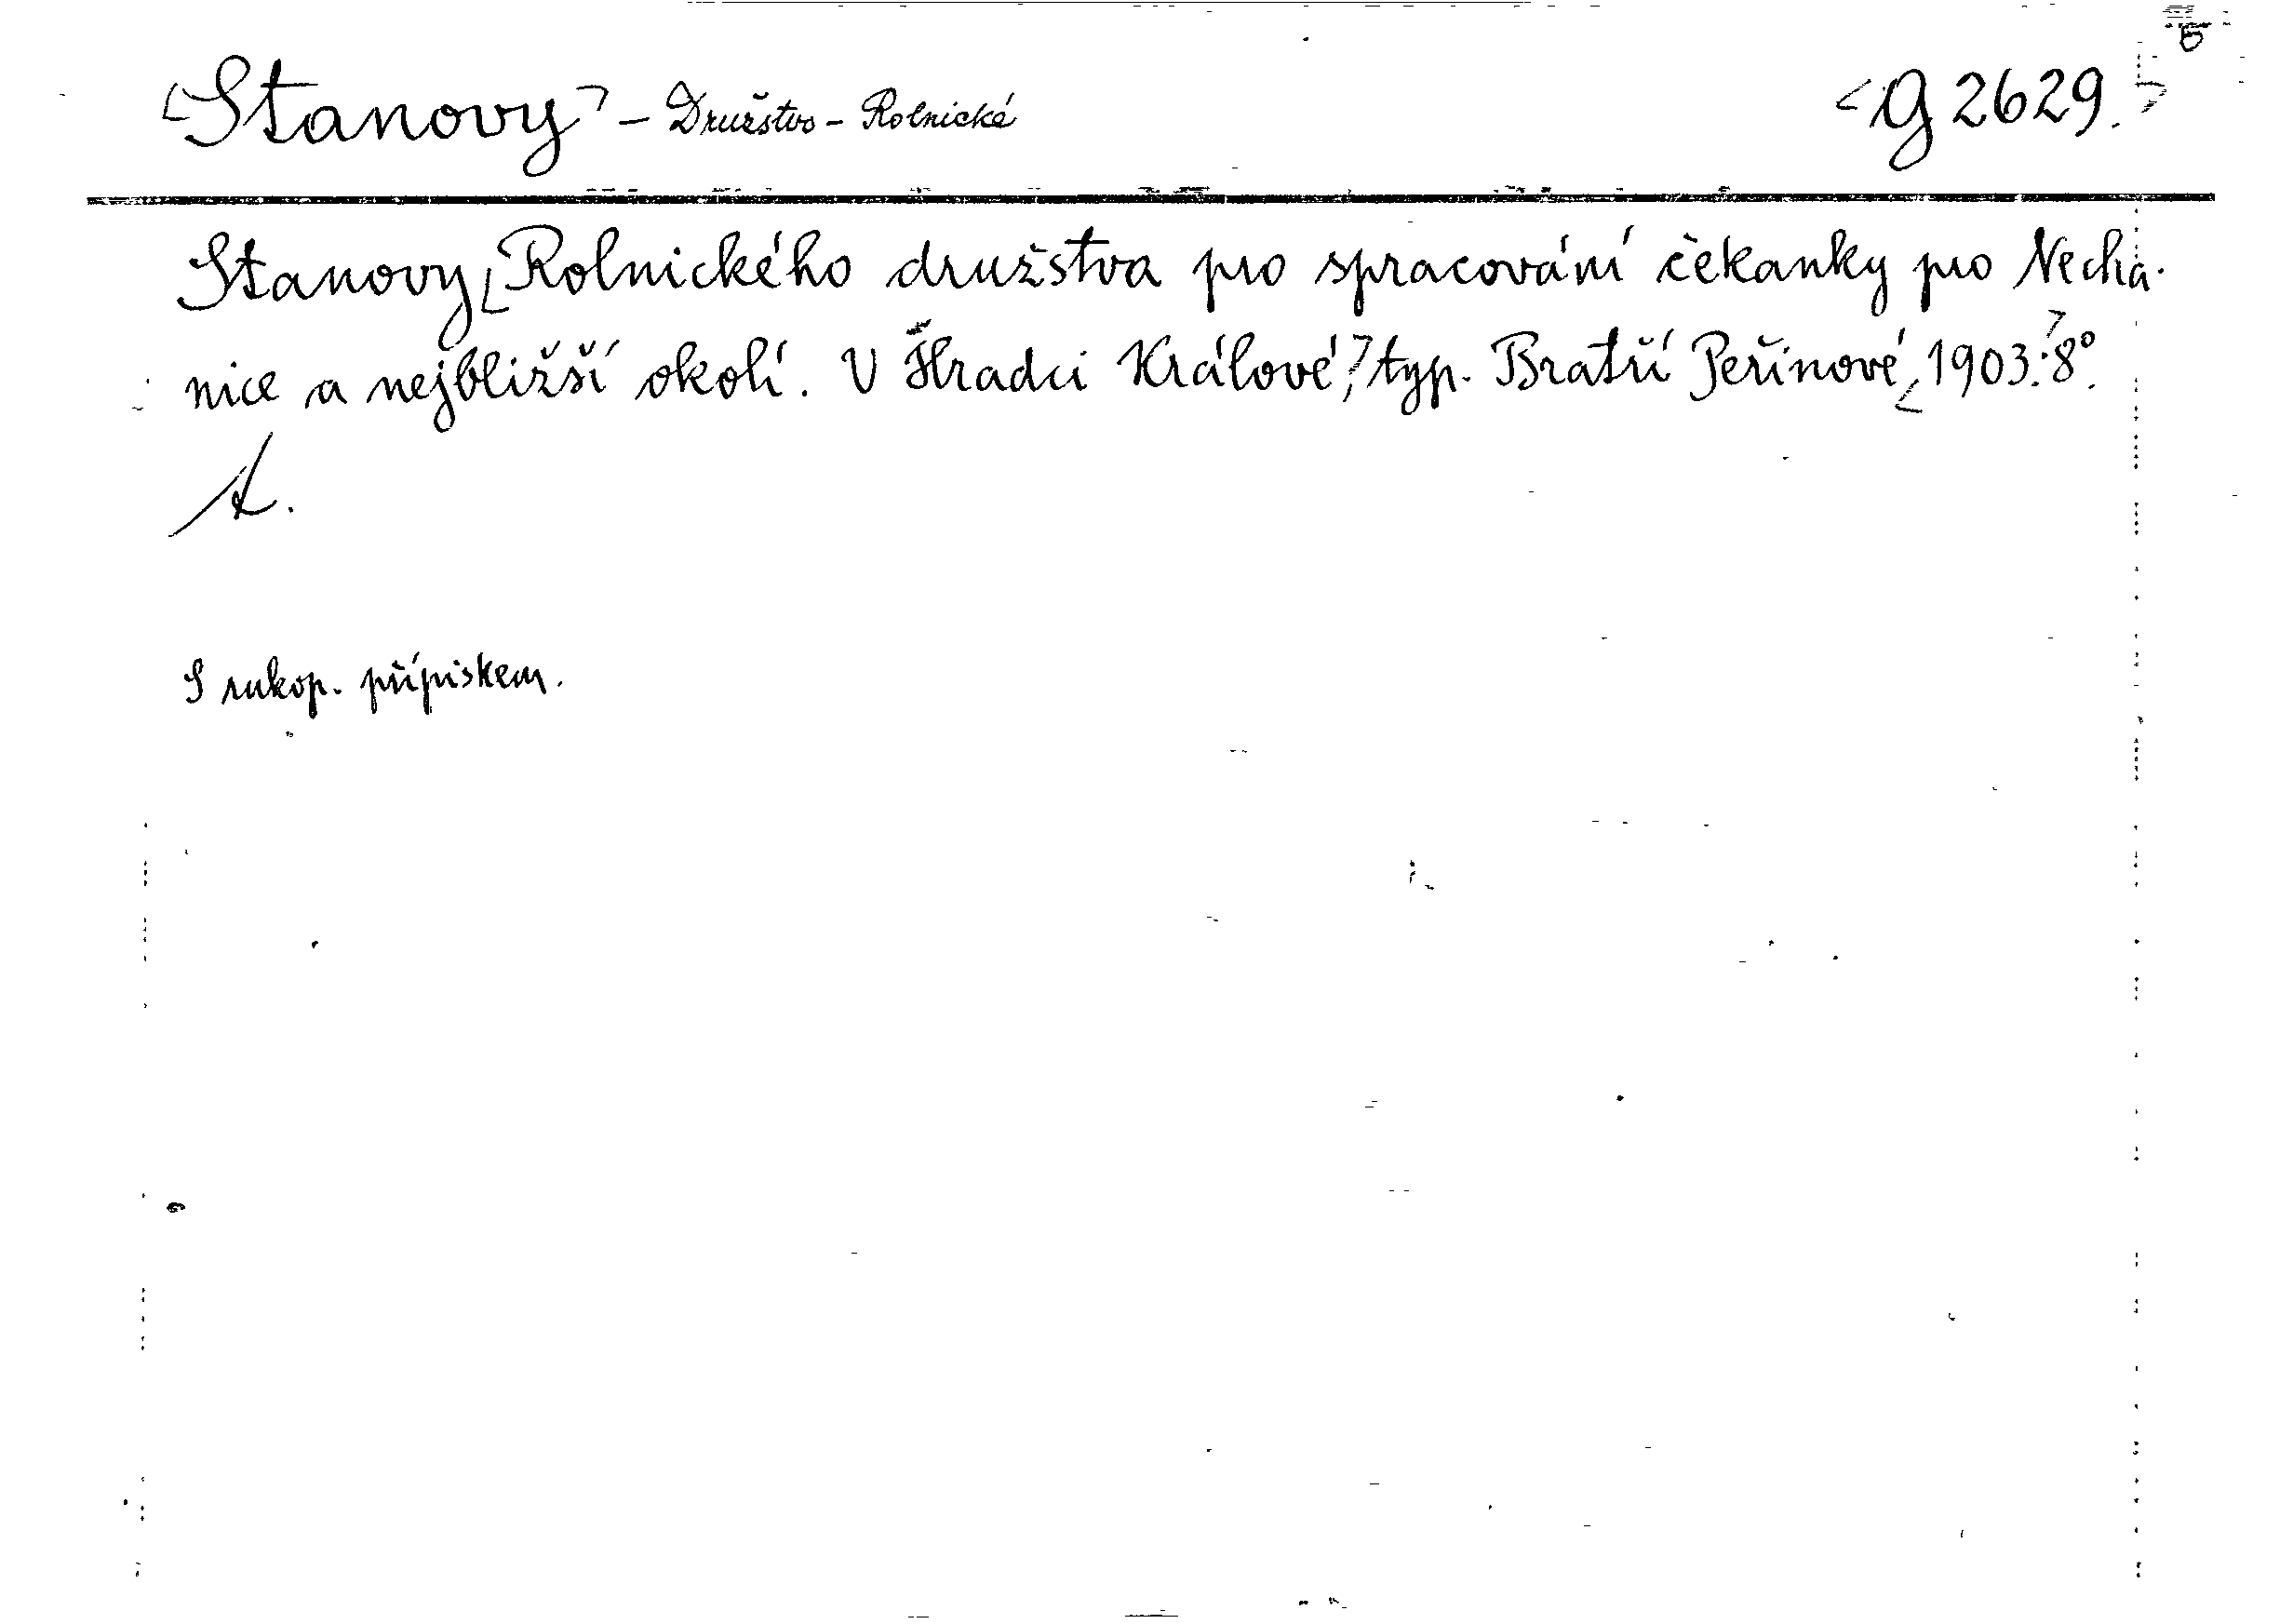 Stanovy - Družstvo - Rolnické
G 2629.
Stanovy Rolnického družstva pro spracování čekanky pro Necha-
nice a nejbližší okolí. V Hradci Králové, typ. Bratří Peřinové, 1903. 8°.
A.
S rukop. přípiskem.